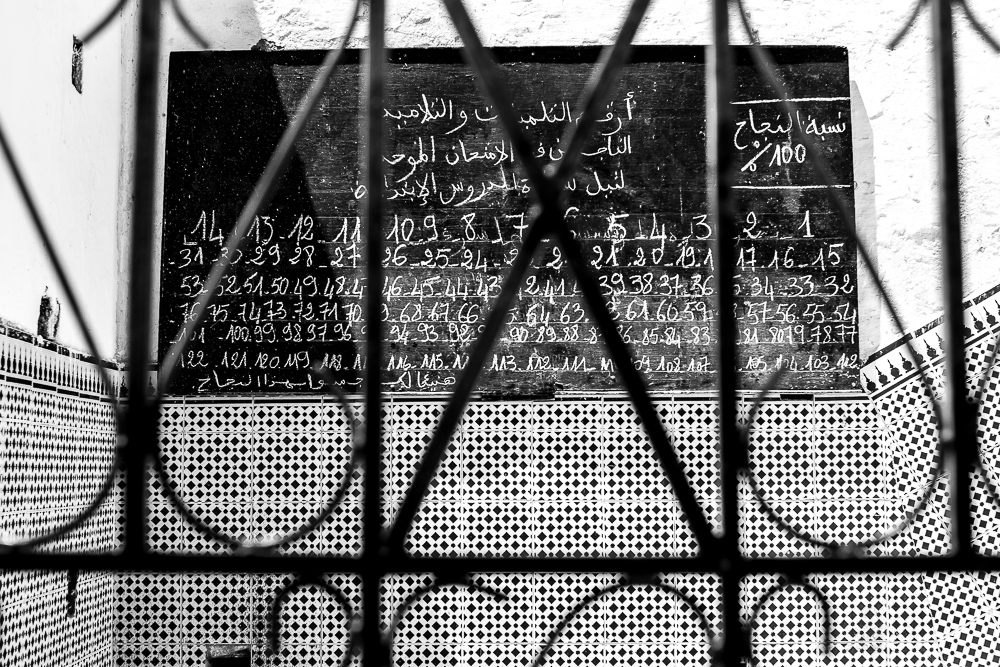 أرقام التلميذات والتلاميذ
الناجحين في الامتحان الموحد
لنيل شهادة الدروس الابتدائية
نسبة النجاح
100%
1 2 3 4 5 6 7 8 9 10 11 12 13 14
15 16 17 19 20 21 24 25 26 27 28 29 31
32 33 34 36 37 38 39 41 42 43 44 45 46 48 49 50 51 52 53
54 55 56 57 59 60 61 63 66 67 68 70 71 72 73 74
77 78 79 80 81 83 84 85 86 88 89 90 92 93 94 96 97 98 99 100
102 103 104 105 107 108 109 111 112 113 115 116 118 119 120 121 122
هنيئا لكم بهذا النجاح